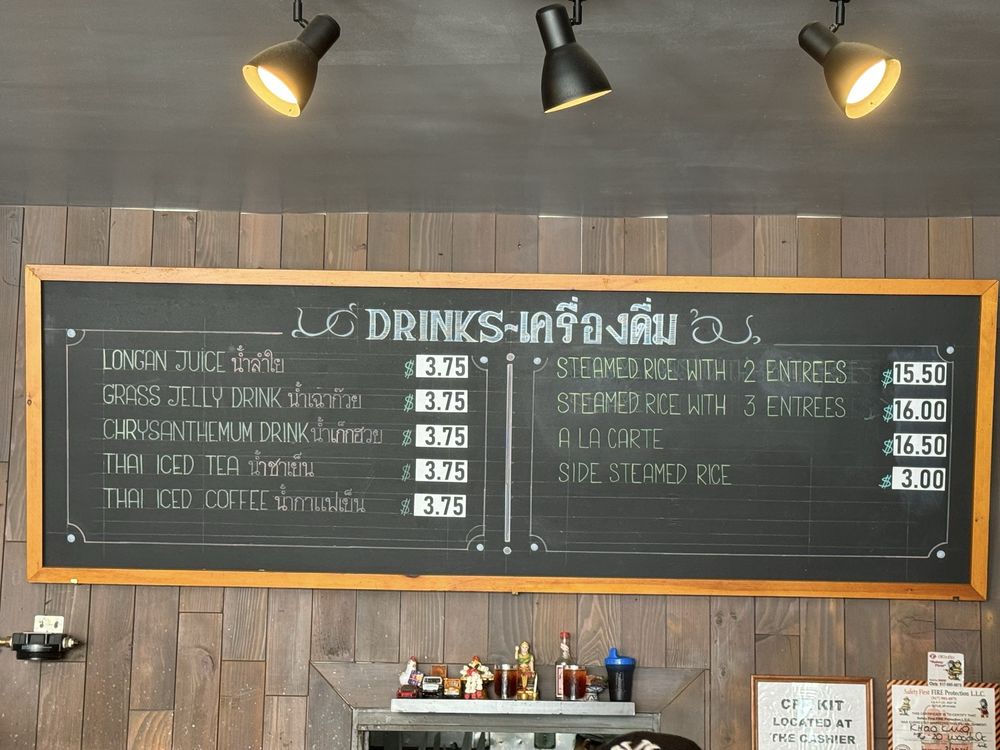 DRINKS~เครื่องดื่ม
LONGAN JUICE น้ำลำใย $ 3.75
GRASS JELLY DRINK น้ำเฉาก๊วย $ 3.75
CHRYSANTHEMUM DRINK น้ำเก็กฮวย $ 3.75
THAI ICED TEA น้ำชาเย็น $ 3.75
THAI ICED COFFEE น้ำกาแฟเย็น $ 3.75
STEAMED RICE WITH 2 ENTREES $15.50
STEAMED RICE WITH 3 ENTREES $16.00
A LA CARTE $16.50
SIDE STEAMED RICE $ 3.00
CPR KIT
LOCATED AT
THE CASHIER
Safety First FIRE Protection L.L.C.